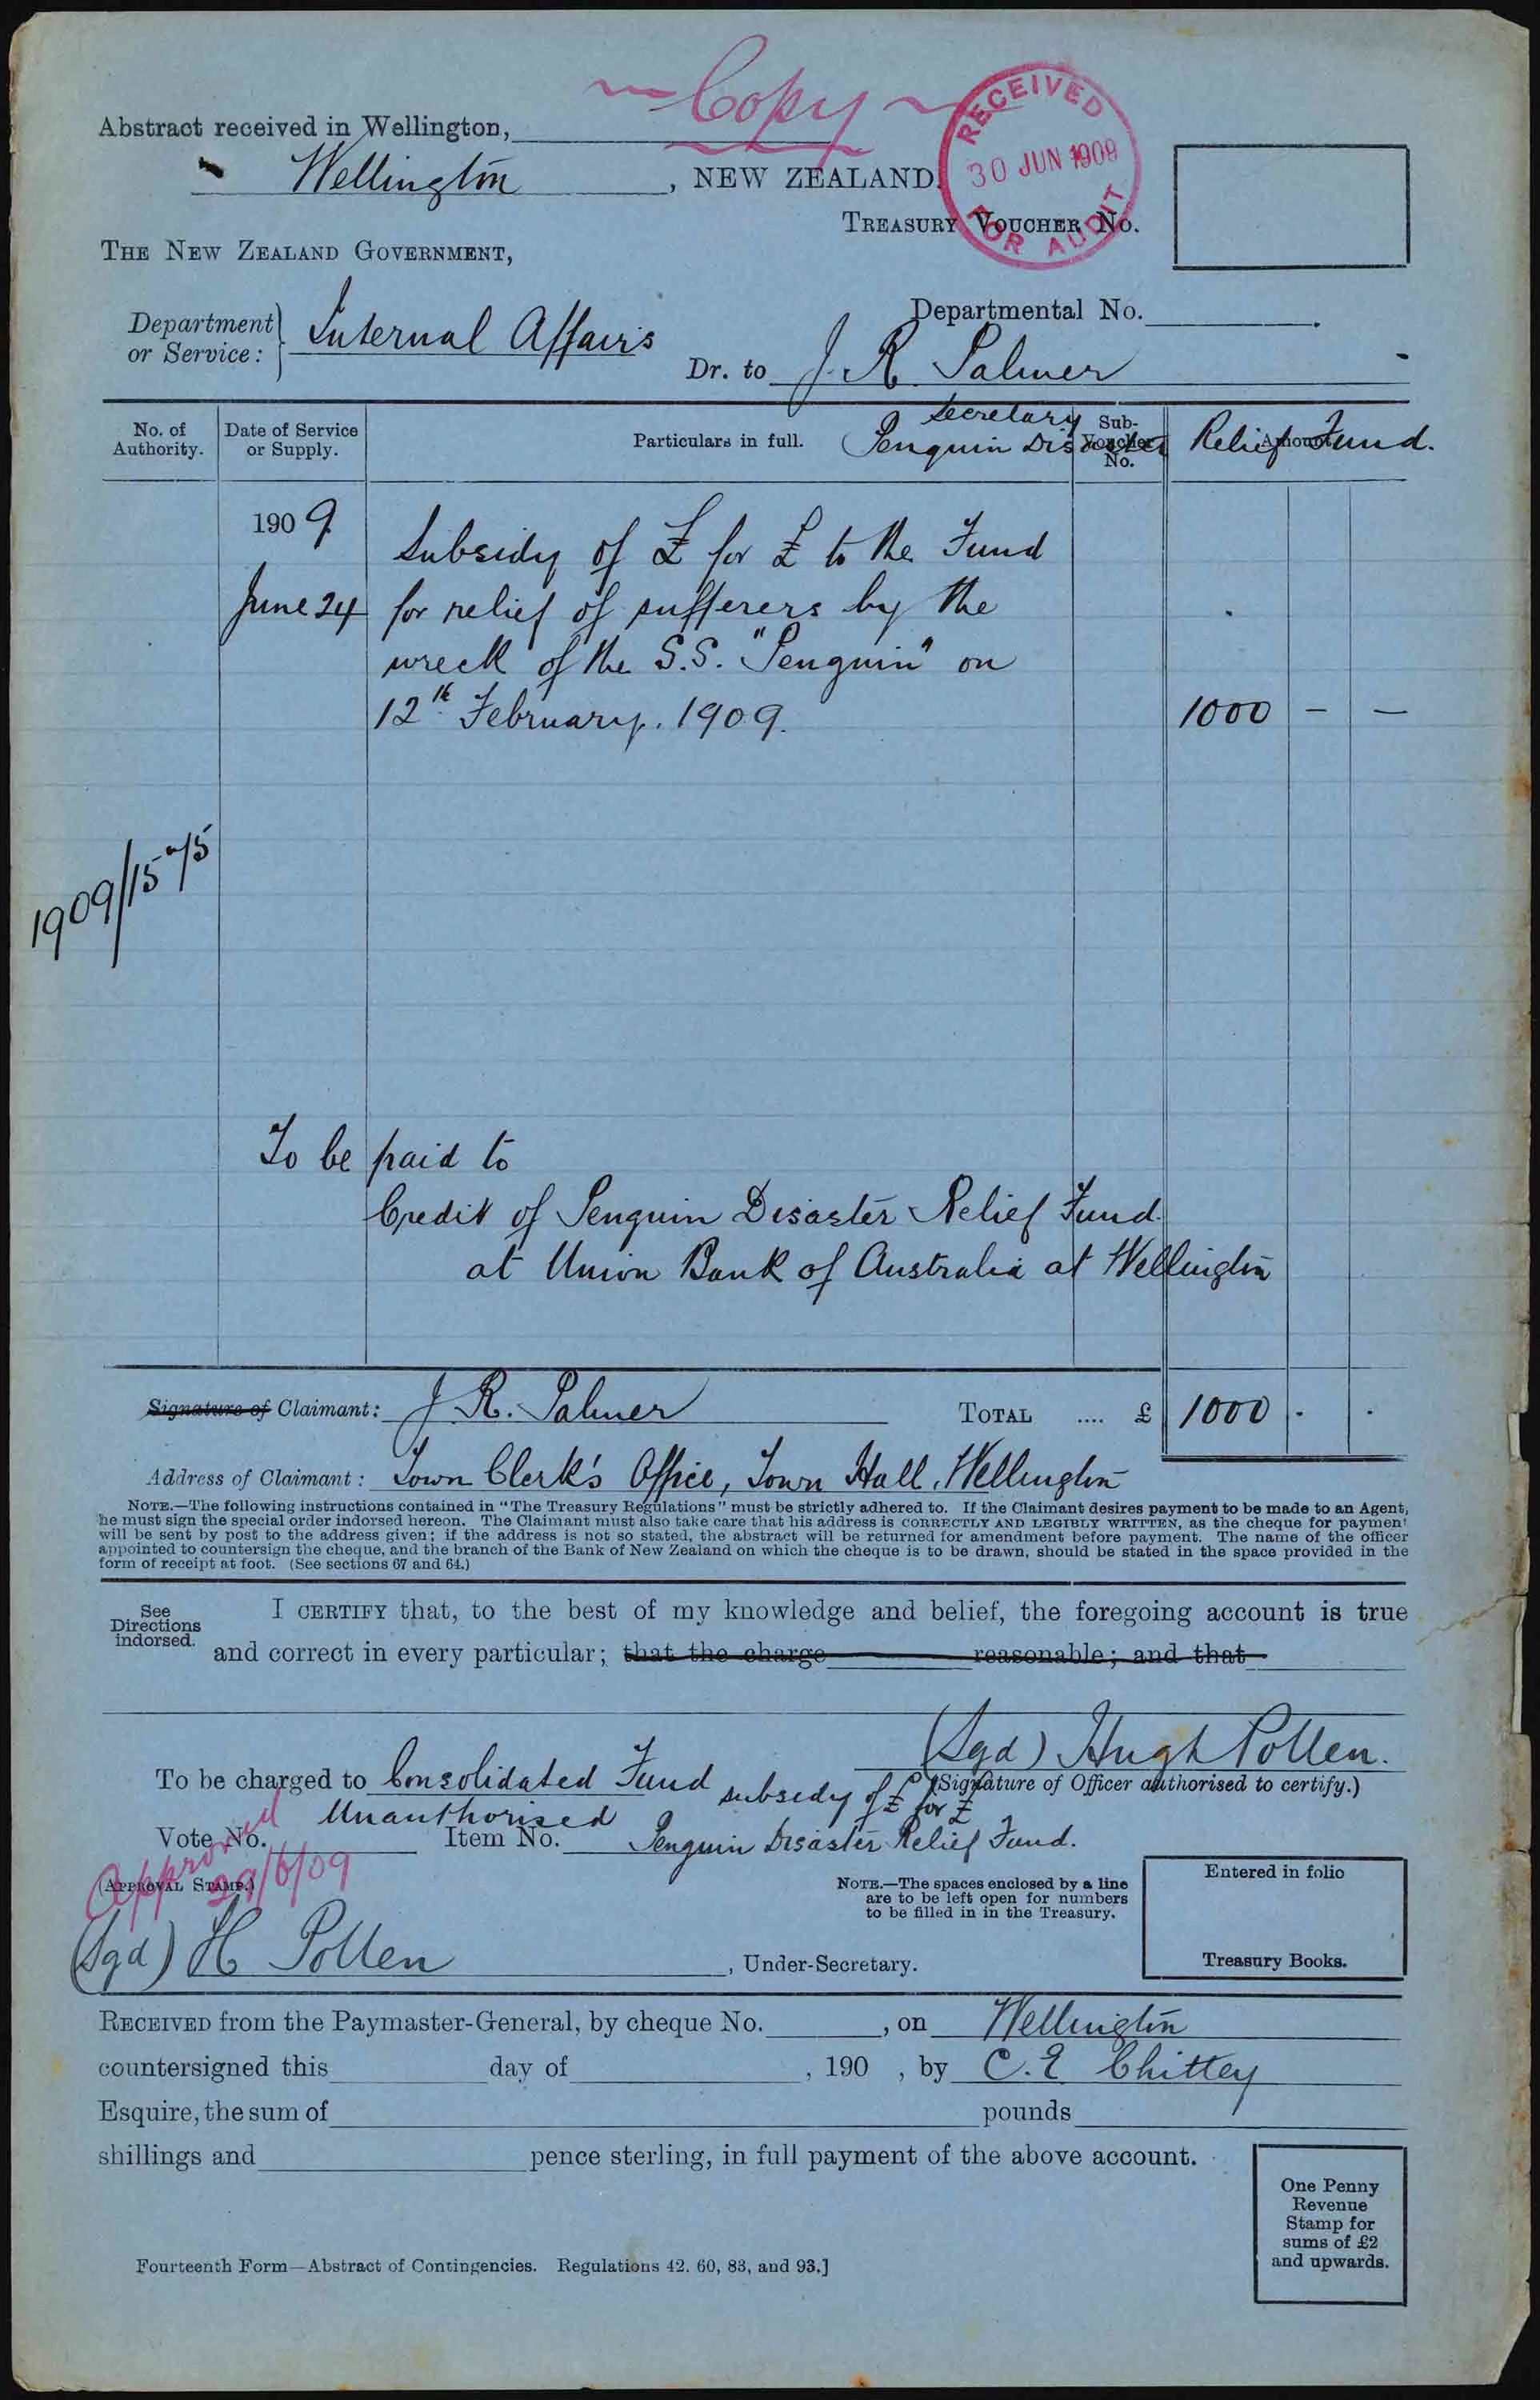 ~ Copy ~
Abstract received in Wellington,
RECEIVED
30 JUN 1909
FOR AUDIT
Wellington, NEW ZEALAND.
TREASURY VOUCHER NO.
THE NEW ZEALAND GOVERNMENT,
Departmental No.
Department or Service: Internal Affairs
Dr. to J. R. Palmer
Secretary
Penguin Disaster Relief Fund.
No. of Authority.
Date of Service or Supply.
Particulars in full.
Sub-Voucher No.
Amount
1909
Subsidy of £ for £ to the Fund
June 24 for relief of sufferers by the
wreck of the S.S. "Penguin" on
12th February. 1909. 1000 – –
1909/1575
To be paid to
Credit of Penguin Disaster Relief Fund.
at Union Bank of Australia at Wellington
Signature of Claimant: J. R. Palmer TOTAL .... £ 1000 - -
Address of Claimant: Town Clerk's Office, Town Hall, Wellington
NOTE.—The following instructions contained in "The Treasury Regulations" must be strictly adhered to. If the Claimant desires payment to be made to an Agent,
he must sign the special order indorsed hereon. The Claimant must also take care that his address is CORRECTLY AND LEGIBLY WRITTEN, as the cheque for payment
will be sent by post to the address given; if the address is not so stated, the abstract will be returned for amendment before payment. The name of the officer
appointed to countersign the cheque, and the branch of the Bank of New Zealand on which the cheque is to be drawn, should be stated in the space provided in the
form of receipt at foot. (See sections 67 and 64.)
See Directions indorsed.
I CERTIFY that, to the best of my knowledge and belief, the foregoing account is true
and correct in every particular; that the charge reasonable; and that
(Sgd) Hugh Pollen.
(Signature of Officer authorised to certify.)
To be charged to Consolidated Fund subsidy of £ for £
Unauthorised
Vote No. Item No. Penguin Disaster Relief Fund.
Approved
29/6/09
(APPROVAL STAMP.)
NOTE.—The spaces enclosed by a line
are to be left open for numbers
to be filled in in the Treasury.
Entered in folio
Treasury Books.
(Sgd) H Pollen, Under-Secretary.
RECEIVED from the Paymaster-General, by cheque No. , on Wellington
countersigned this day of , 190 , by C. E Chittey
Esquire, the sum of pounds
shillings and pence sterling, in full payment of the above account.
One Penny
Revenue
Stamp for
sums of £2
and upwards.
Fourteenth Form—Abstract of Contingencies. Regulations 42. 60, 83, and 93.]